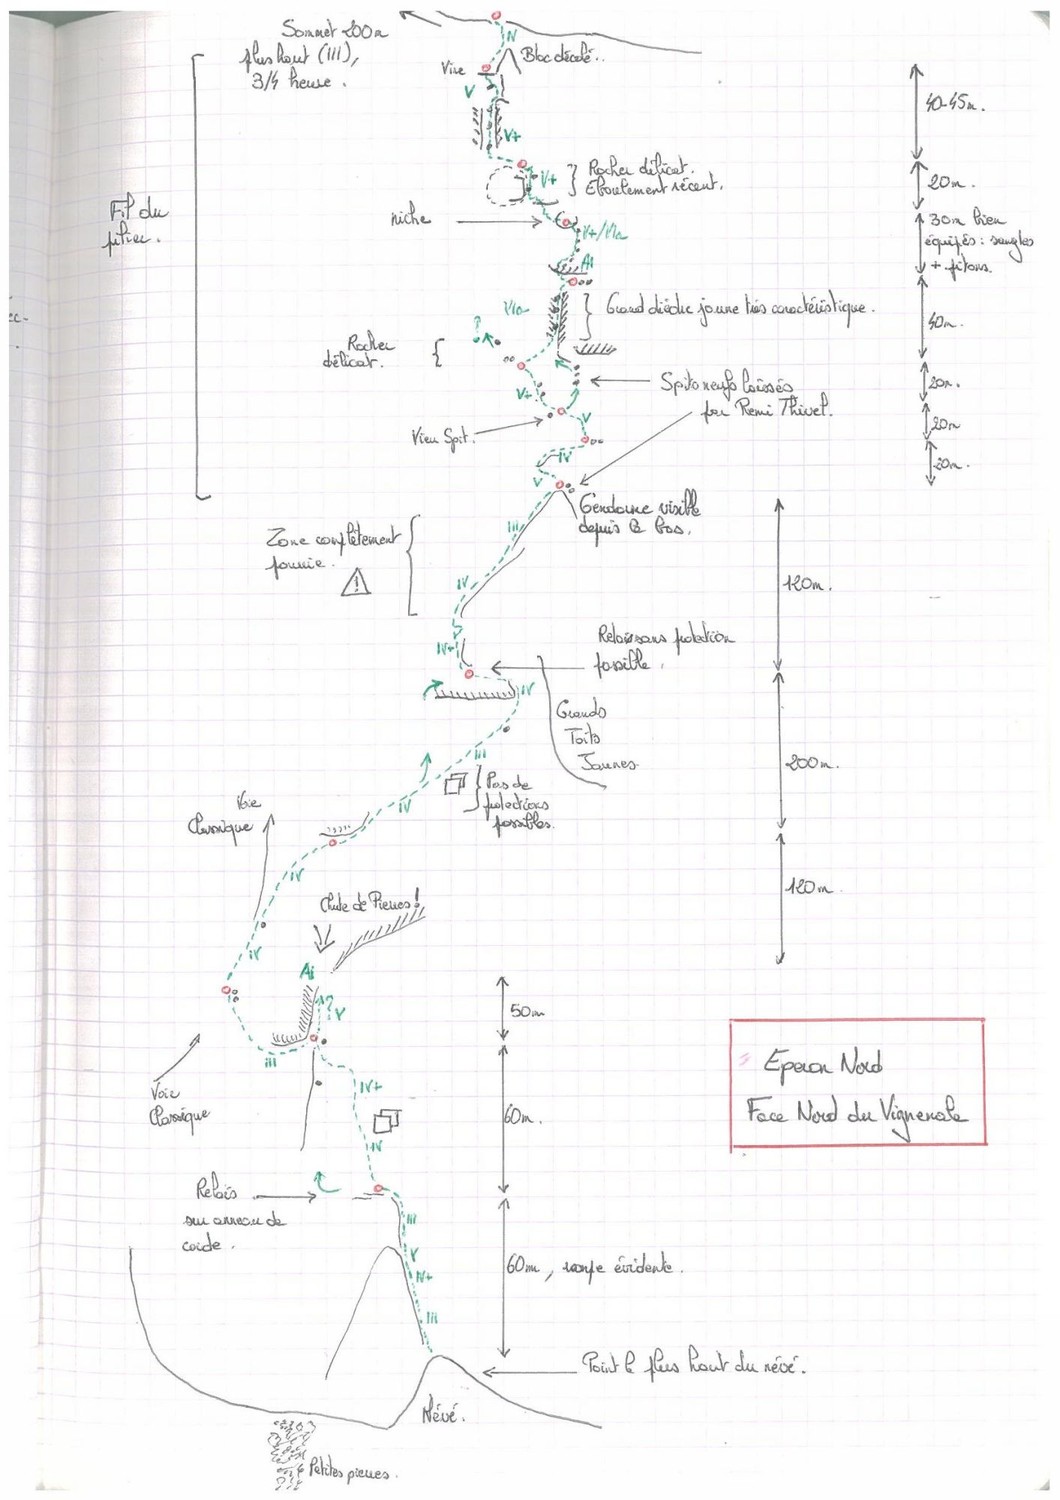 Sommet 200m
plus haut (III),
3/4 heure.
IV
Bloc décolé..
Vire
V
V+
40-45m.
V+
Rocher délicat.
Eboulement récent.
20m.
Fil du
pilier.
niche
V+/VIa
30m bien
équipés: sangles
+ pitons.
AI
VIa
Grand dièdre jaune très caractéristique.
40m.
?
Rocher
délicat.
Spits neufs laissés
par Remi Thivel.
20m.
V+
V
Vieu Spit.
20m
IV
V
20m.
Gendarme visible
depuis le bas.
III
Zone complètement
pourrie.
!
IV
120m.
V
IV+
Relais sans protection
possible.
IV
Grands
Toits
Jaunes
III
200m.
Pas de
protections
possibles.
IV
Voie
Classique
IV
120m.
Chute de Pierres!
IV
AI
50m
?
V
III
Voie
Classique
IV+
60m.
IV
Eperon Nord
Face Nord du Vignemale
Relais
sur anneau de
corde.
III
V
IV+
III
60m, rampe évidente.
Point le plus haut du névé.
Névé.
Petites pierres.